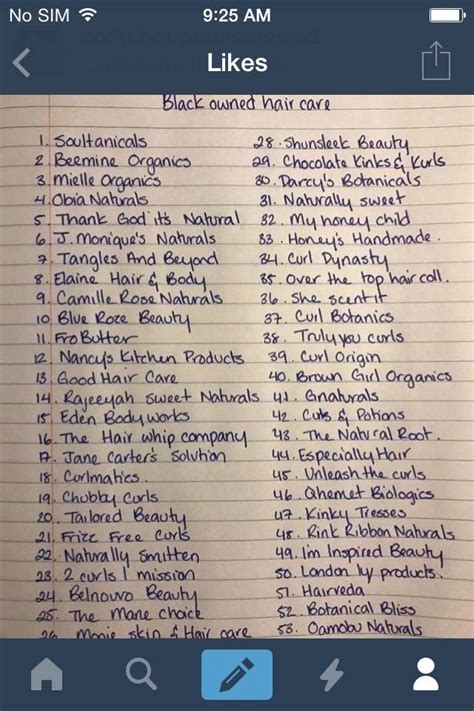 No SIM 9:25 AM
Likes
Black owned hair care
1. Soultanicals
2 Beemine Organics
3. Mielle Organics
4. Obia Naturals
5. Thank God its Natural
6. J. Monique's Naturals
7. Tangles And Beyond
8. Elaine Hair & Body
9. Camille Rose Naturals
10 Blue Roze Beauty
11. Fro Butter
12. Nancy's Kitchen Products
13 Good Hair Care
14. Rajeeyah Sweet Naturals
15 Eden Bodyworks
16. The Hair whip company
17. Jane Carter's Solution
18. Curlmatics.
19. Chubby Curls
20. Tailored Beauty
21. Frizz Free Curls
22. Naturally Smitten
23. 2 curls 1 mission
24. Belnouvo Beauty
25. The Mane choice
26 skin & Hair care
28. Shunsleek Beauty
29. Chocolate Kinks & Kurls
30. Darcy's Botanicals
31. Naturally sweet
32. My honey child
33. Honey's Handmade.
34. Curl Dynasty
35. Over the top hair coll.
36. She scent it
37. Curl Botanics
38. Truly you curls
39. Curl Origin
40. Brown Girl Organics
41. Gnaturals
42. & Potions
43. The Natural Root.
44. Especially Hair
45. Unleash the curls
46. Qhemet Biologics
47. Kinky Tresses
48. Rink Ribbon Naturals
49. I'm Inspired Beauty
50. London products.
51. Hairveda
52. Botanical Bliss
53. Oamobu Naturals